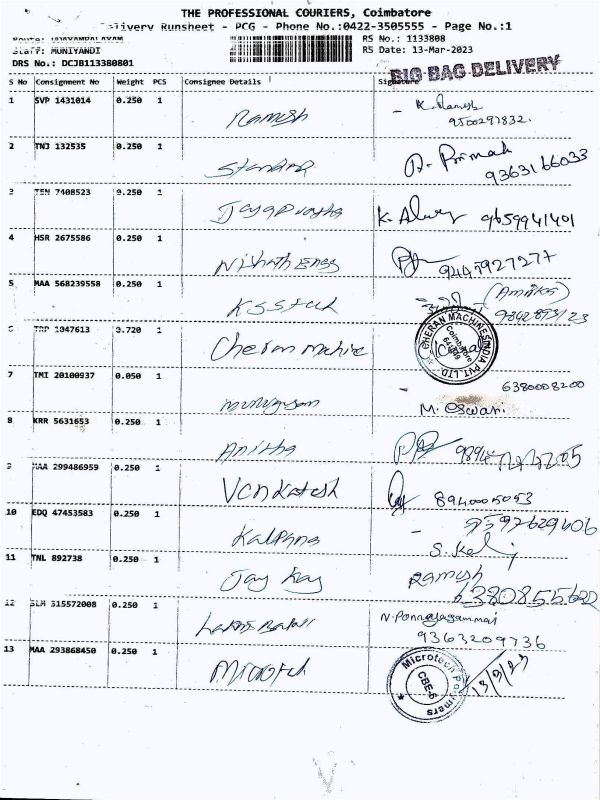 THE PROFESSIONAL COURIERS, Coimbatore
Delivery Runsheet - PCG - Phone No.:0422-3505555 - Page No.:1
RS No.: 1133808
Staff: MUNIYANDI
RS Date: 13-Mar-2023
DRS No.: DCJB113380801
BIG BAG DELIVERY
S No Consignment No Weight PCS Consignee Details Signature
1 SVP 1431014 0.250 1 Ramesh K. Ramesh
9500297832.
2 TNJ 132535 0.250 1
9363166033
3 TEN 7408523 0.250 1 K.
9659941401
4 HSR 2675586 0.250 1 Nishath Engg
9447927277
5 MAA 568239558 0.250 1
9842893123
6 1047613 3.720 1 Cheran Machine
CHERAN MACHINES INDIA PVT. LTD.
Coimbatore
7 TMI 20100937 0.050 1 Murugesan
6380008200
M. Eswari
8 KRR 5631653 0.250 1 Anitha
9 MAA 299486959 0.250 1 Venkatesh
8940005053
10 EDQ 47453583 0.250 1 Kalpana
9597629406
11 TNL 892738 0.250 1 Jay Kay Ramesh
6380855622
12 SLM 315572008 0.250 1
N. Ponnalagammai
9363209736
13 MAA 293868450 0.250 1 Microtech
Microtech Polymers
CBE-6
13/3/23